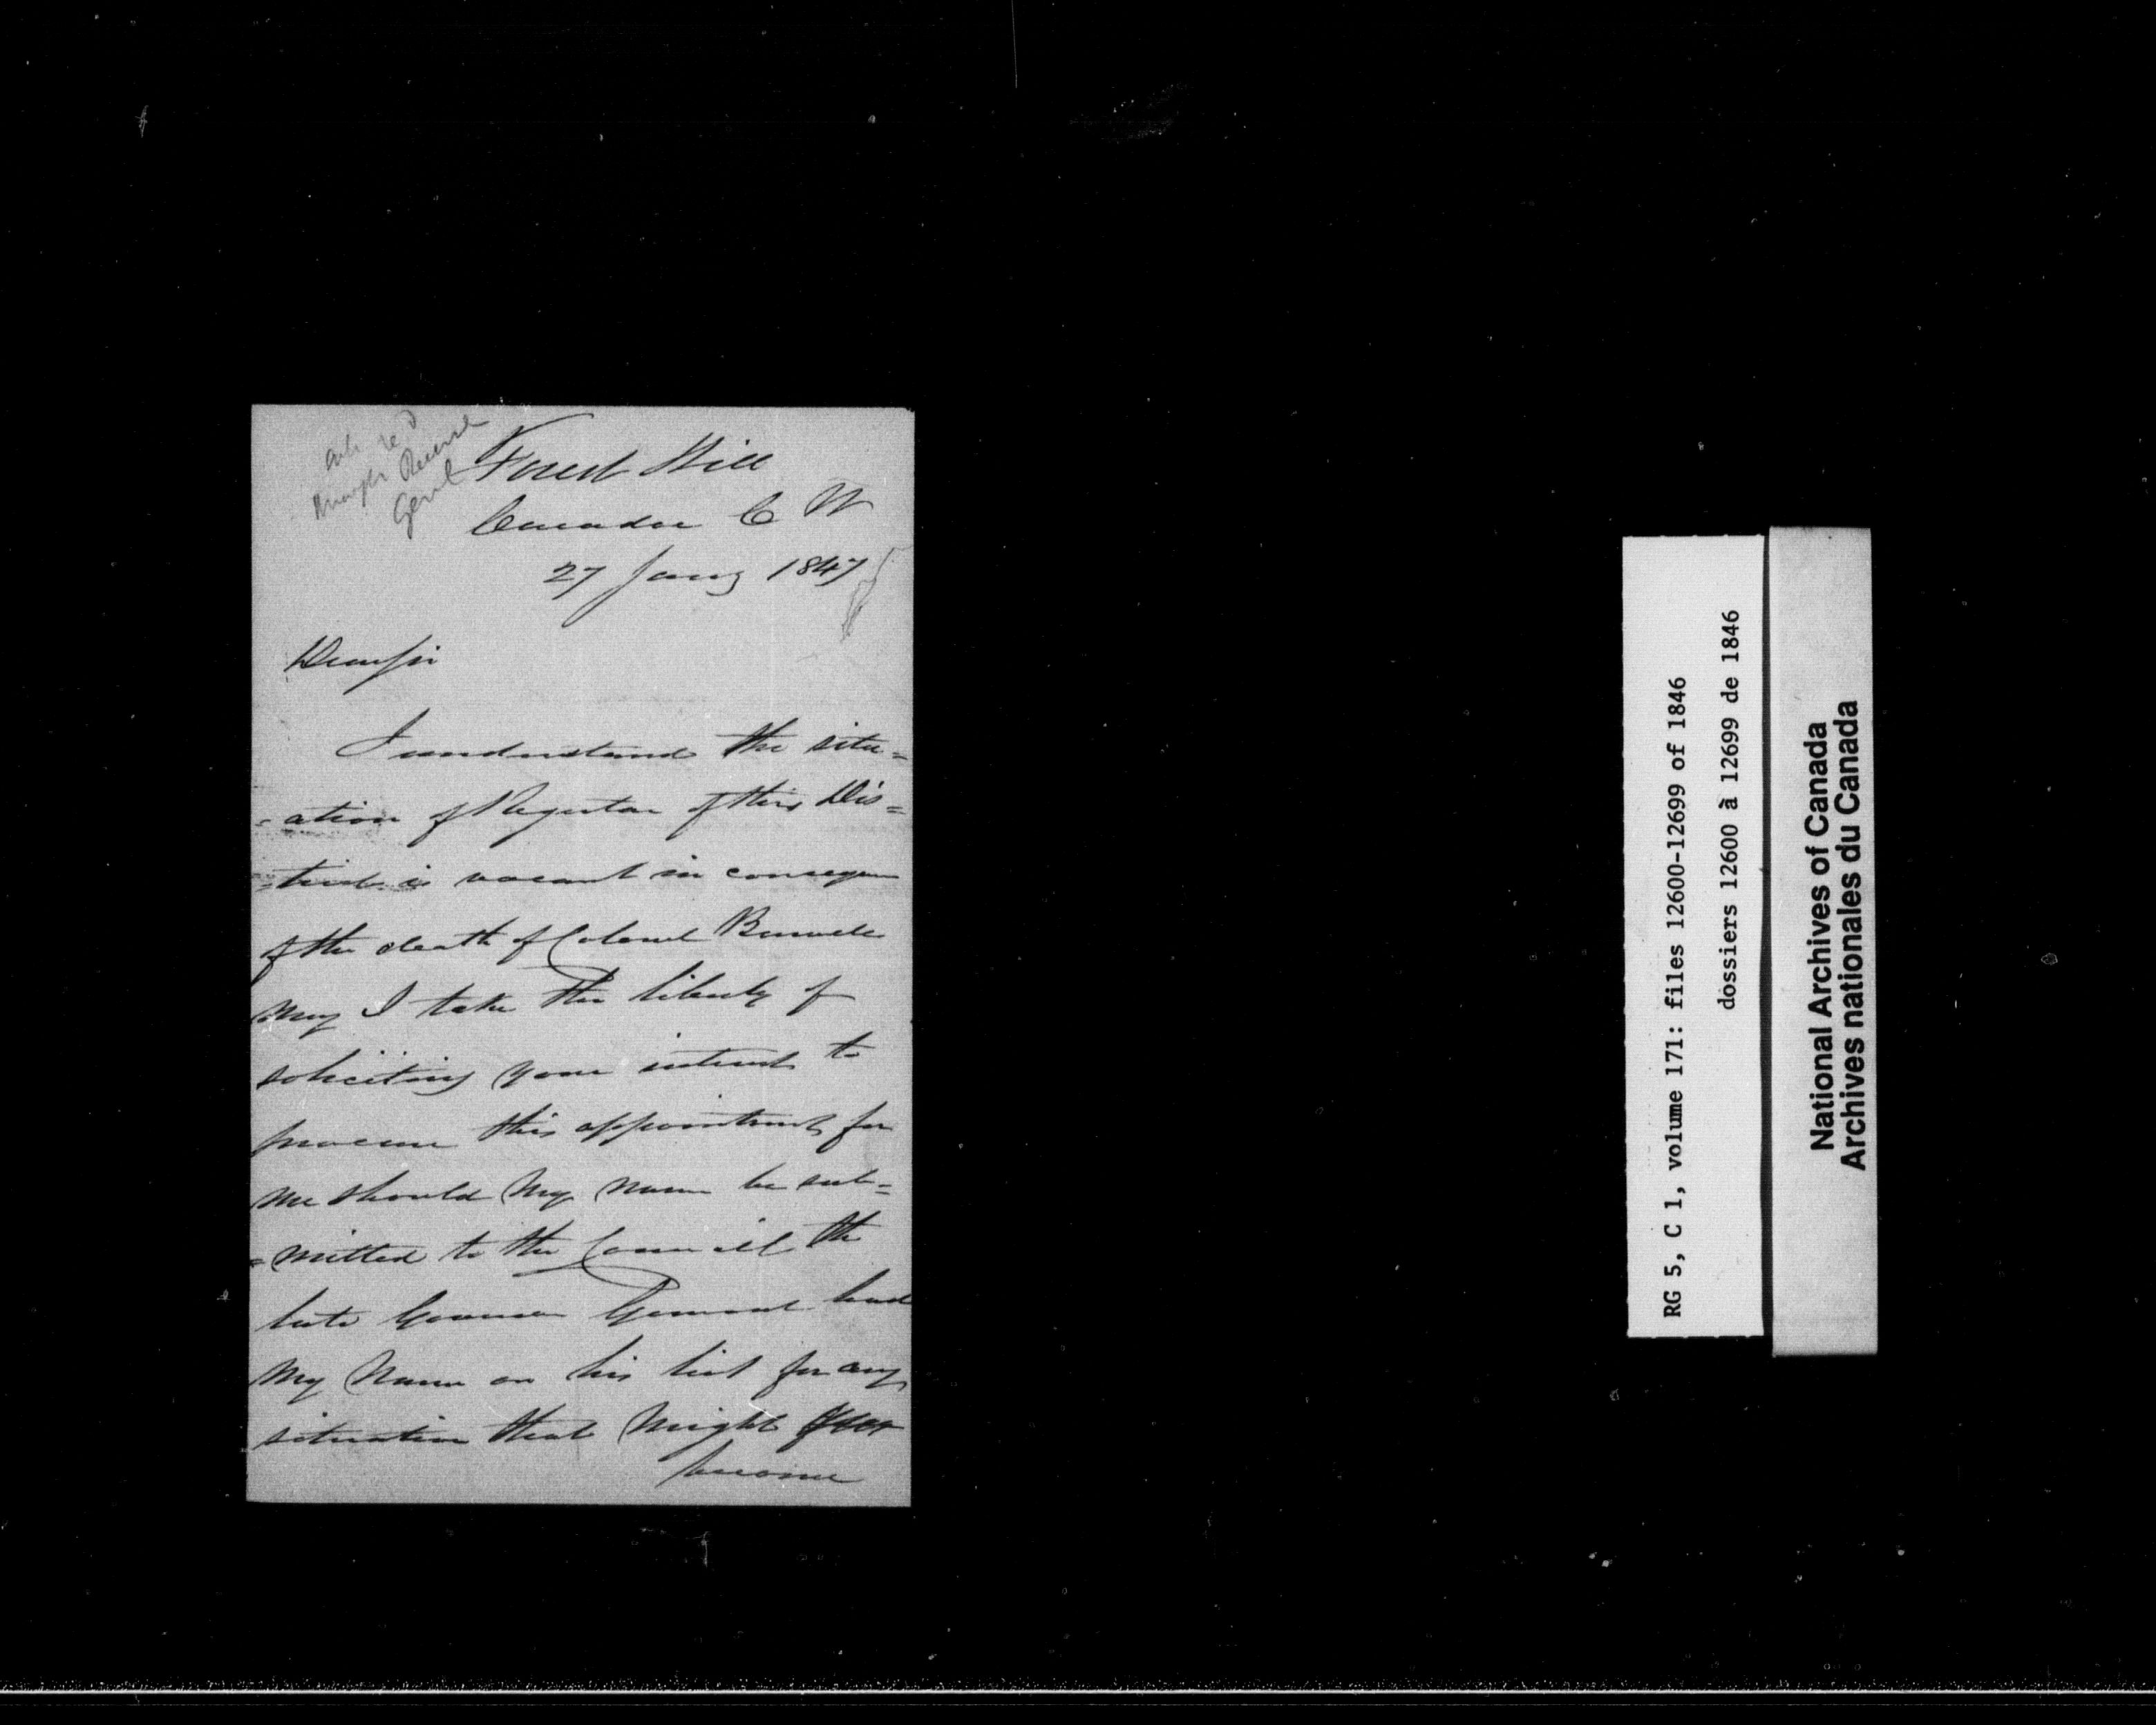 Genl
Forest Hill
Canada C W
27 Jany 1847
Dear Sir
I understand the situ=
=ation of Registar of this Dis=
=trict is vacant in consequen
of the death of Colonel Burwell
May I take the liberty of
soliciting your interest to
procure this appointment for
me should My name be sub=
=mitted to the Council the
late Governor General had
My Name on his list for any
situation that Might
become
RG 5, C 1, volume 171: files 12600-12699 of 1846
dossiers 12600 à 12699 de 1846
National Archives of Canada
Archives nationales du Canada